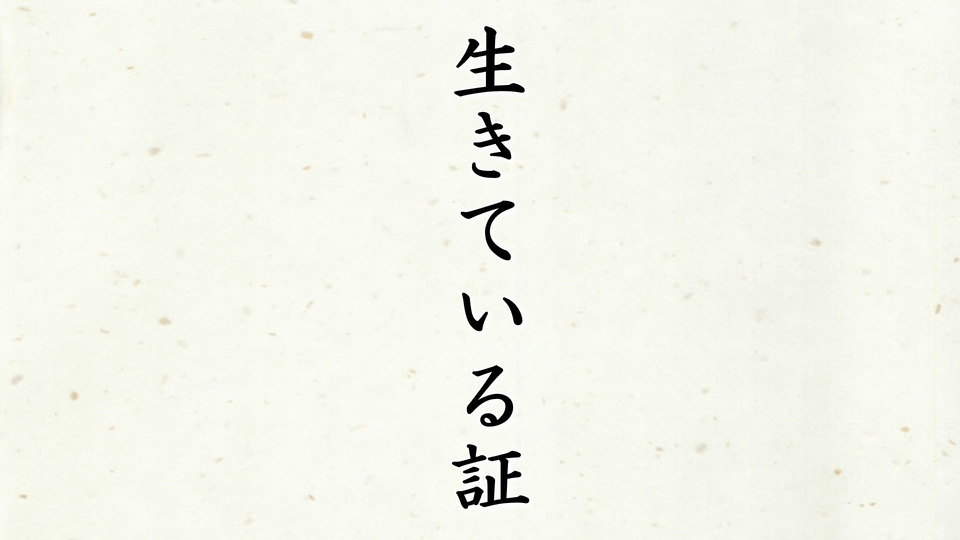 生きている証